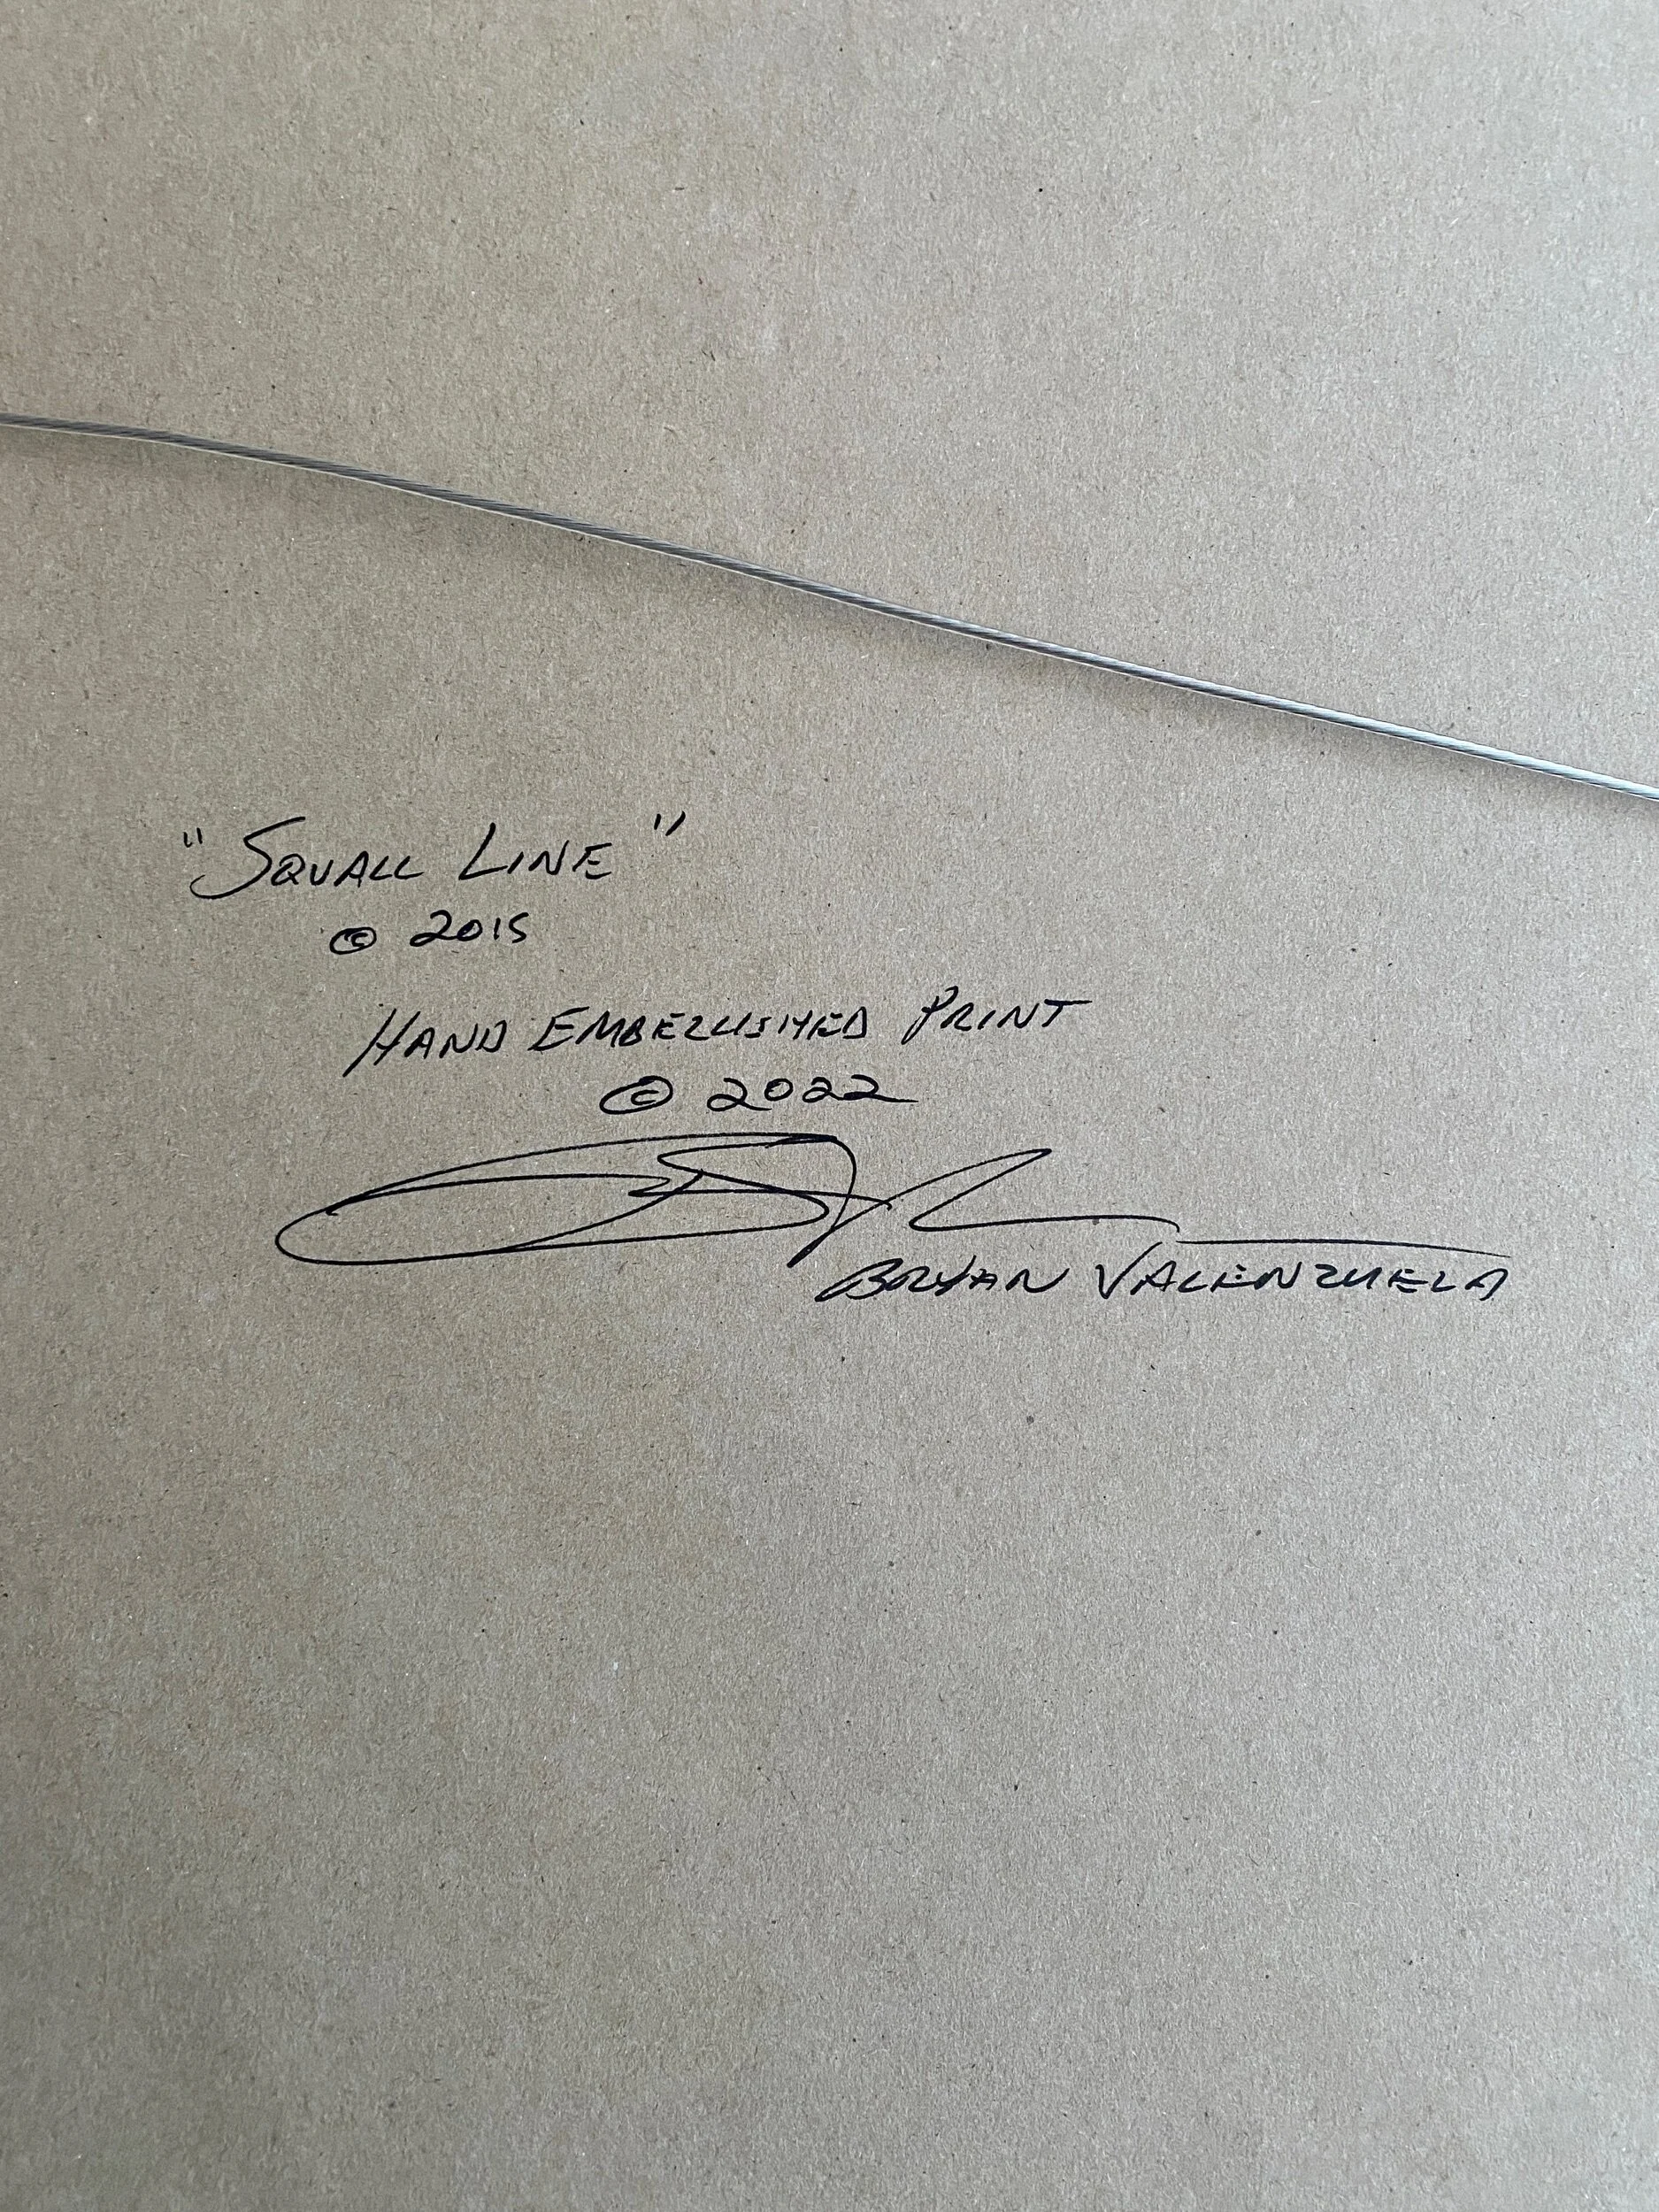 "SQUALL LINE"
© 2015
HAND EMBELLISHED PRINT
© 2022
BRYAN VALENZUELA